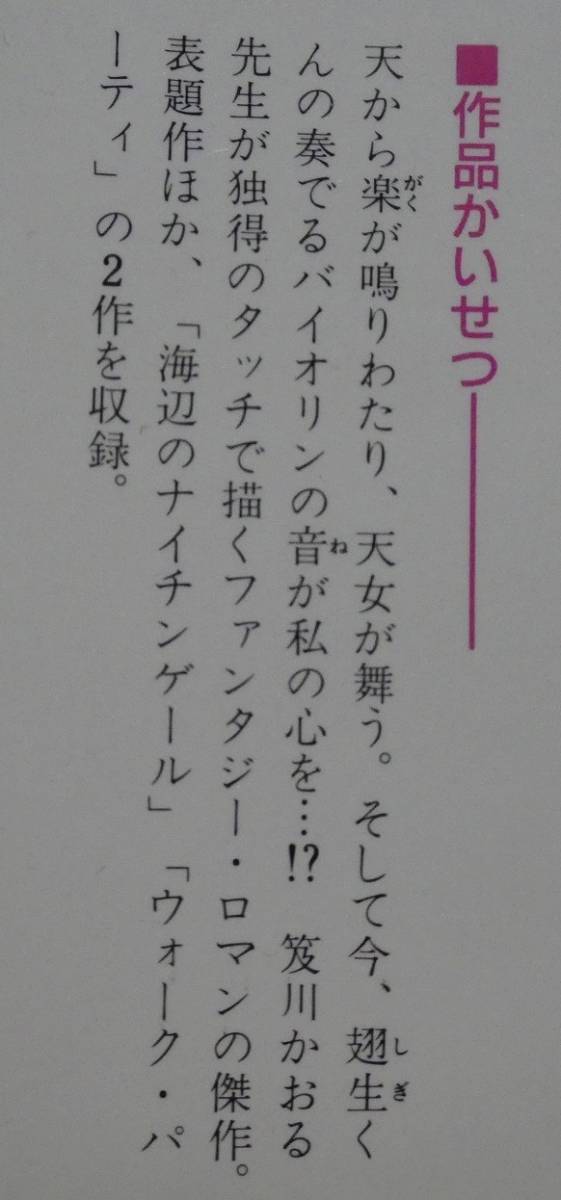 ■作品かいせつ――
天から楽が鳴りわたり、天女が舞う。そして今、翅生く
んの奏でるバイオリンの音が私の心を…!? 笈川かおる
先生が独得のタッチで描くファンタジー・ロマンの傑作。
表題作ほか、「海辺のナイチンゲール」「ウォーク・パ
ーティ」の2作を収録。